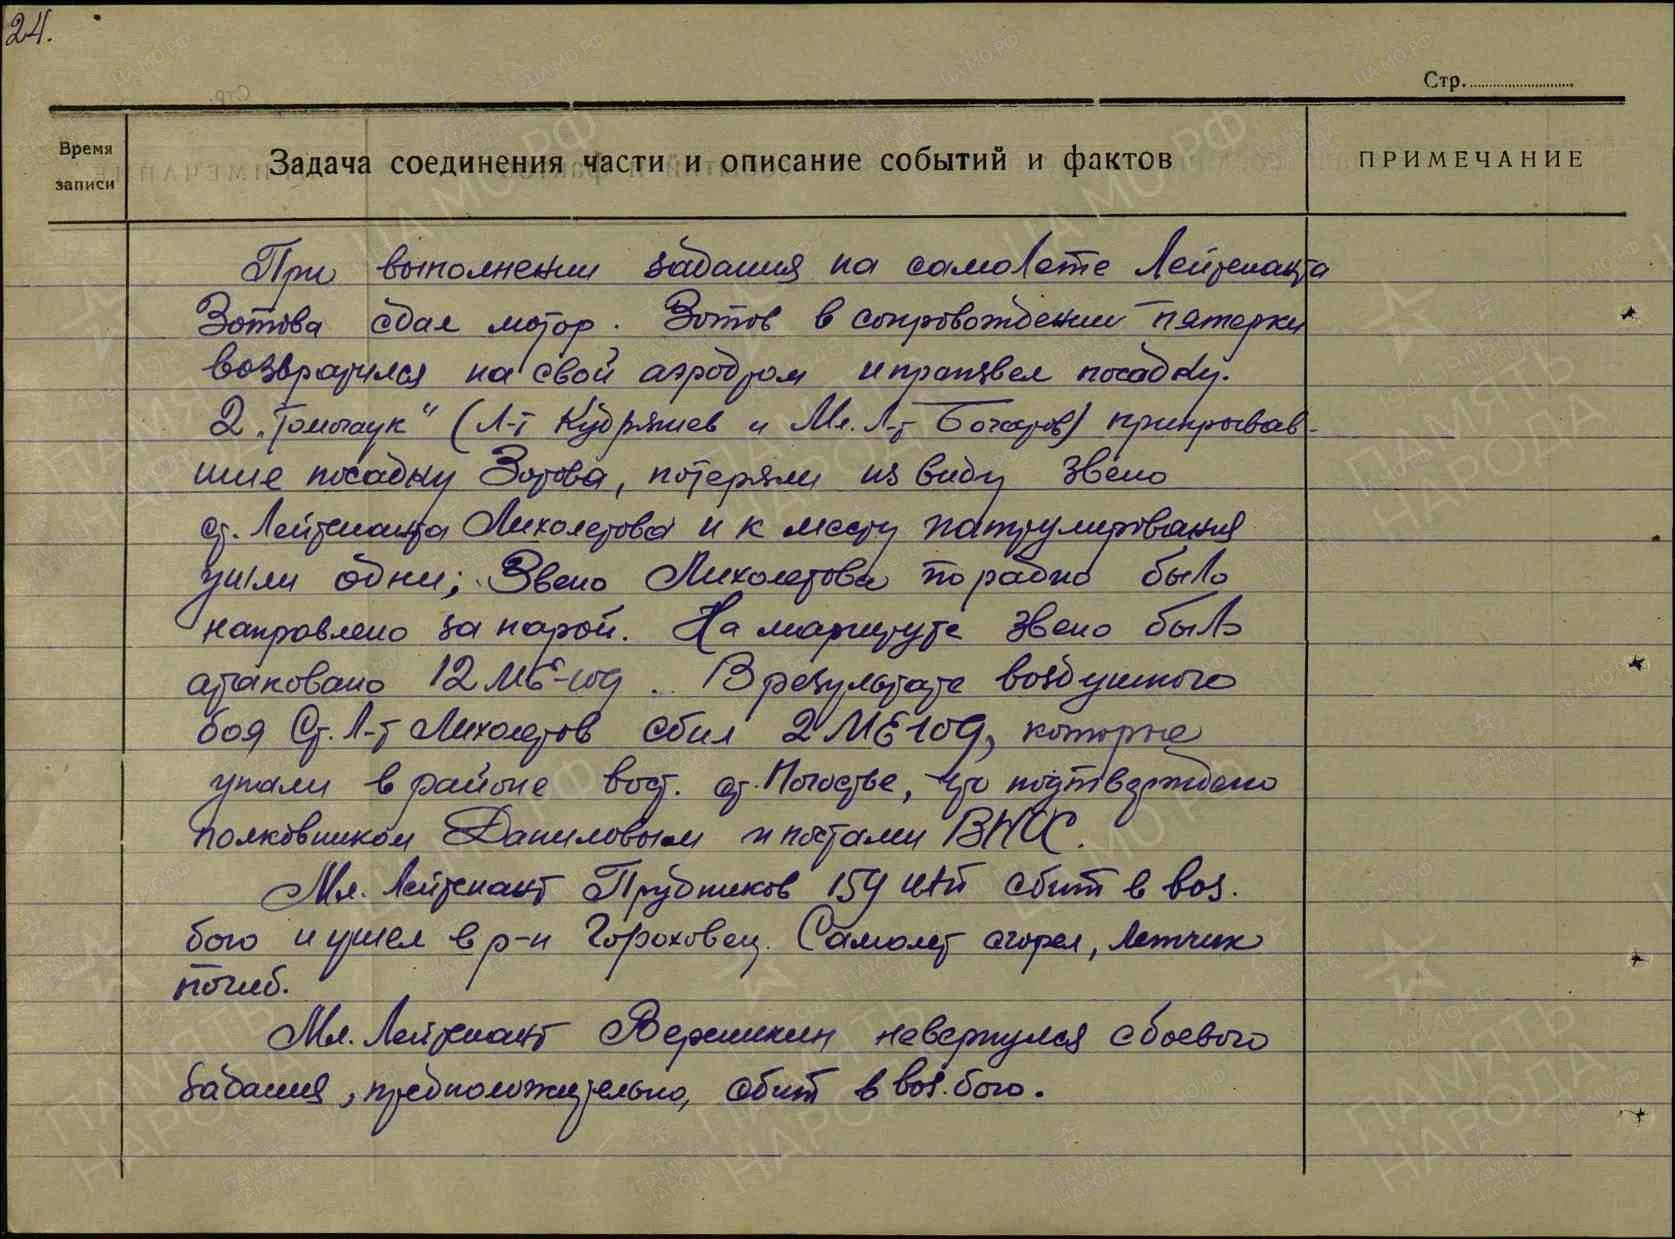 24.
Стр.
Время записи
Задача соединения части и описание событий и фактов
ПРИМЕЧАНИЕ
При выполнении задания на самолете Лейтенанта
Зотова сдал мотор. Зотов в сопровождении пятерки
возвратился на свой аэродром и произвел посадку.
2 „Томогаук" (Л-т Кудряшев и Мл. Л-т Бочаров) прикрывав-
шие посадку Зотова, потеряли из виду звено
ст. Лейтенанта Лихолетова и к месту патрулирования
ушли одни; Звено Лихолетова по радио было
направлено за парой. На маршруте звено было
атаковано 12 МЕ-109. В результате воздушного
боя Ст. Л-т Лихолетов сбил 2 МЕ109, которые
упали в районе вост. ст. Погостье, что подтверждено
полковником Даниловым и постами ВНОС.
Мл. Лейтенант Прудников 159 ИАП сбит в воз.
бою и ушел в р-н Гороховец. Самолет сгорел, летчик
погиб.
Мл. Лейтенант невернулся с боевого
задания, предположительно, сбит в воз. бою.